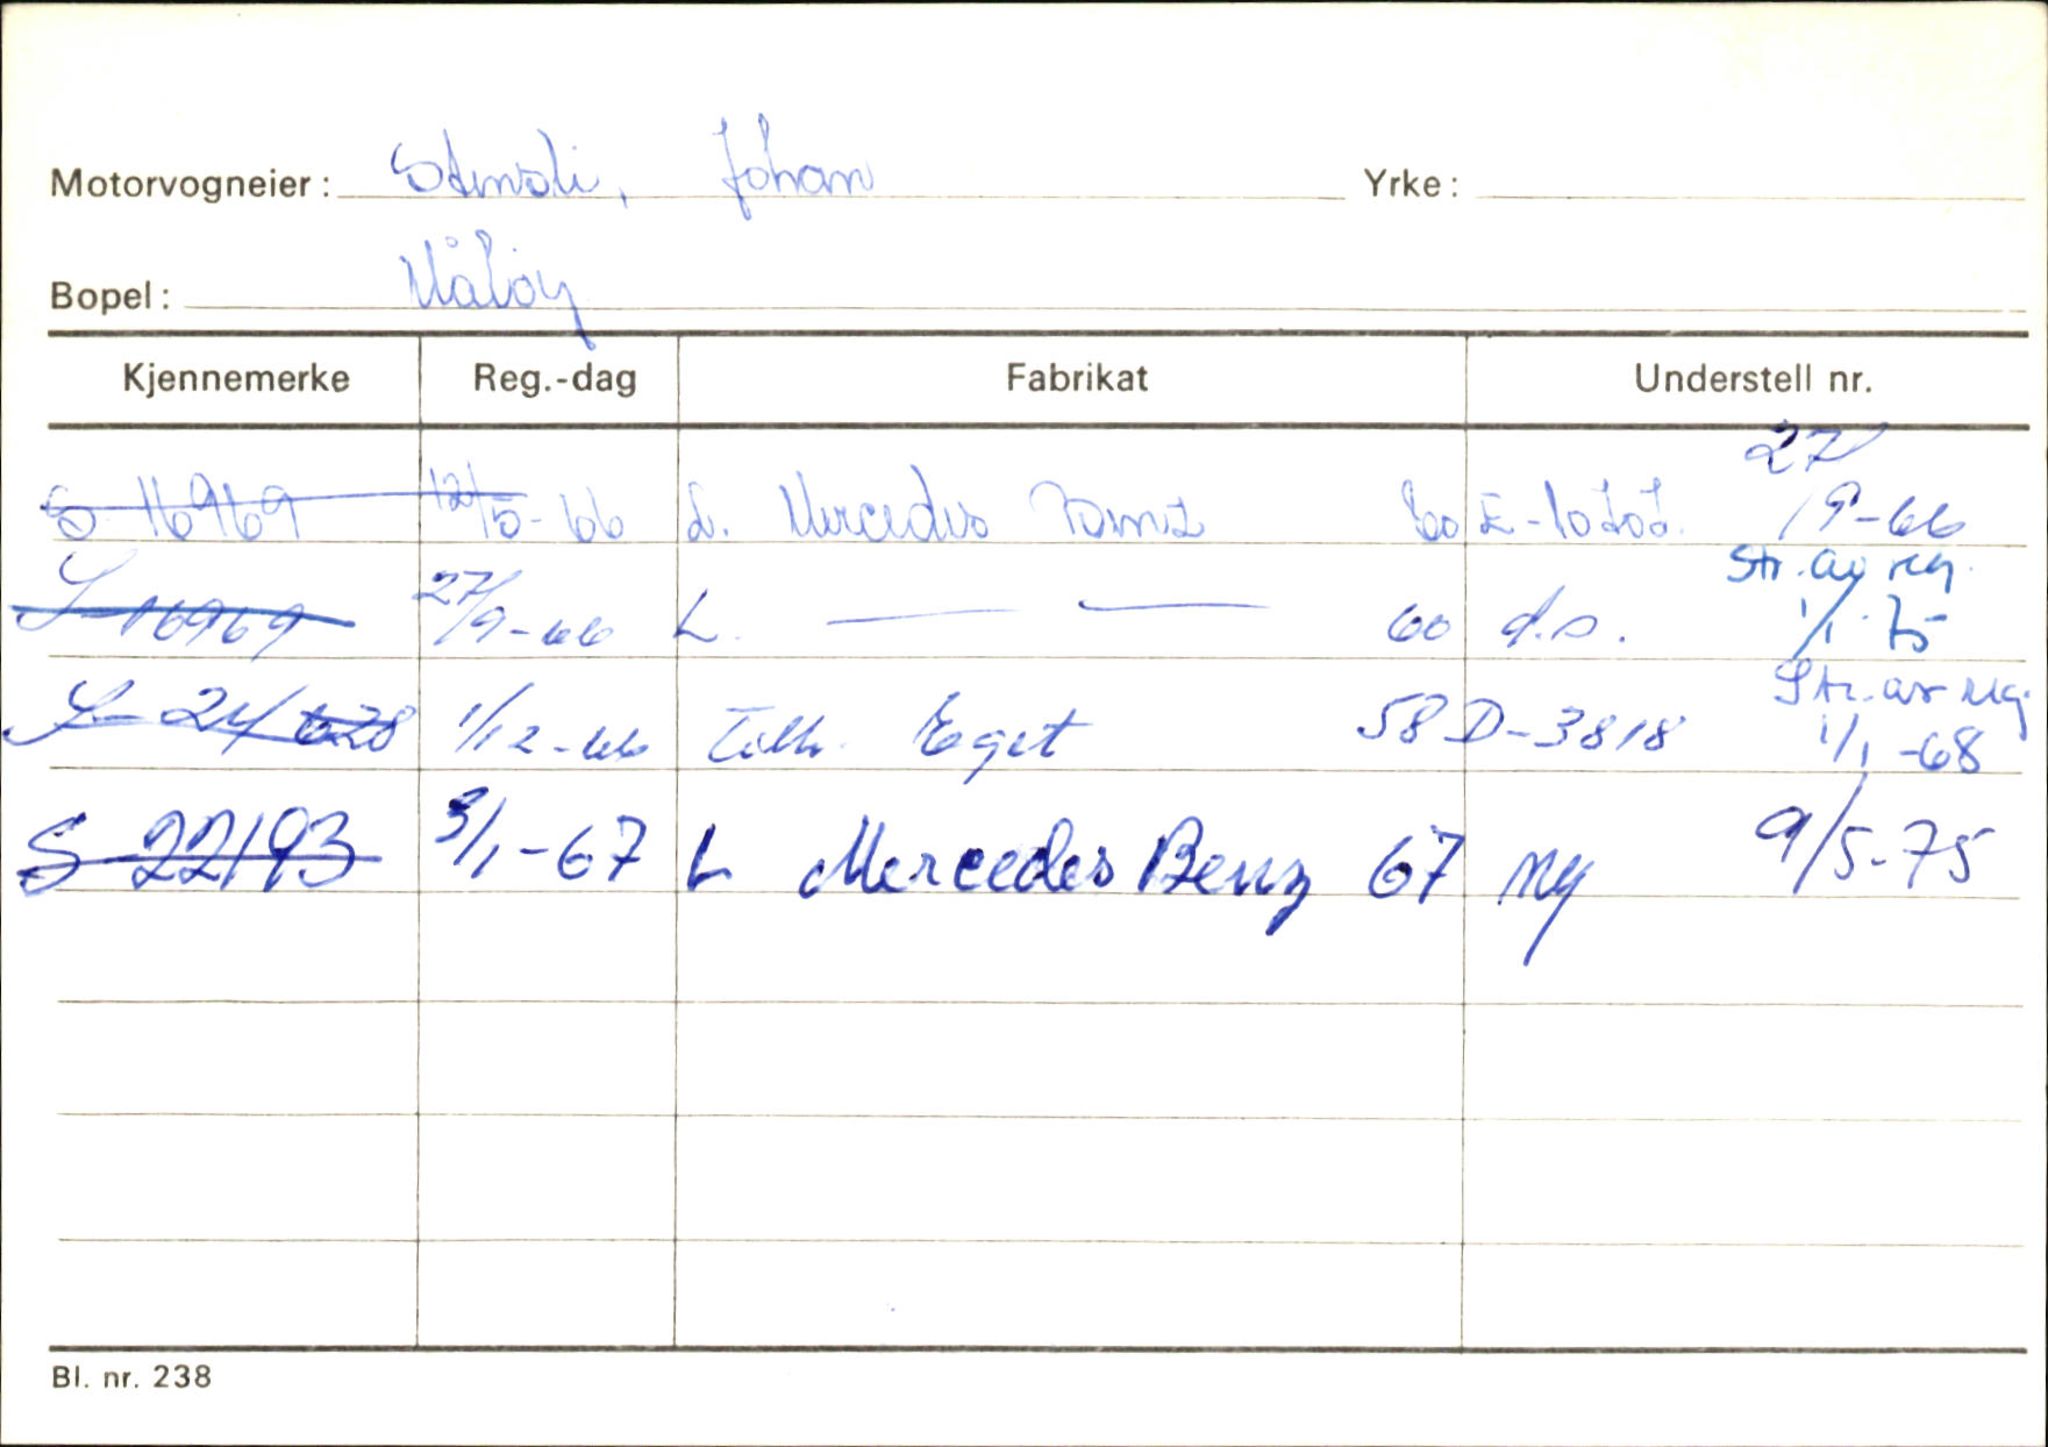 Motorvogneier: Stensli, Johan Yrke:
Bopel: Måløy
Kjennemerke Reg.-dag Fabrikat Understell nr.
27/9-66
S 16969 12/5-66 L. Mercedes Benz 60
S-16969 27/9-66 L. — — 60 d.s. Str. av reg. 1/1-75
S-24628 1/12-66 Tilh. Eget 58 D-3818 Str. av reg. 1/1-68
S-22193 3/1-67 L Mercedes Benz 67 Ny 9/5-75
Bl. nr. 238